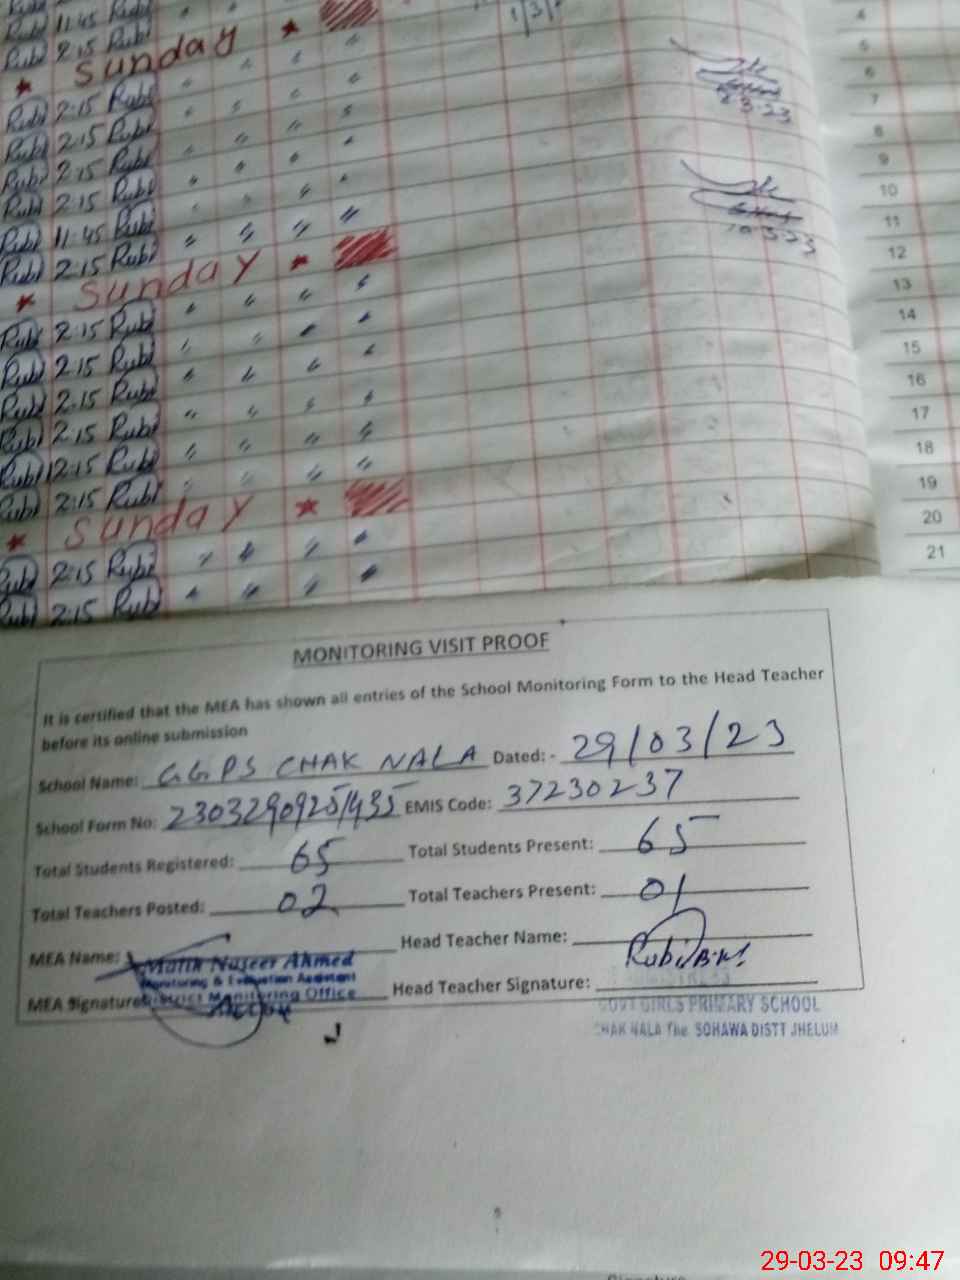 11:45
2:15 Rubi
★ Sunday ★
Rubi 2:15 Rubi " " " "
Rubi 2:15 Rubi " " " "
Rubi 2:15 Rubi " " " "
Rubi 2:15 Rubi " " " "
Rubi 11:45 Rubi " " " "
Rubi 2:15 Rubi " " " "
★ Sunday ★
Rubi 2:15 Rubi " " " "
Rubi 2:15 Rubi " " " "
Rubi 2:15 Rubi " " " "
Rubi 2:15 Rubi " " " "
Rubi 2:15 Rubi " " " "
Rubi 2:15 Rubi " " " "
★ Sunday ★
Rubi 2:15 Rubi " " " "
Rubi 2:15 Rubi " " " "
10-3-23
4
5
6
7
8
9
10
11
12
13
14
15
16
17
18
19
20
21
MONITORING VISIT PROOF
It is certified that the MEA has shown all entries of the School Monitoring Form to the Head Teacher
before its online submission
School Name: GGPS CHAK NALA Dated: - 29/03/23
School Form No: EMIS Code: 37230237
Total Students Registered: 65 Total Students Present: 65
Total Teachers Posted: 02 Total Teachers Present: 01
MEA Name: Head Teacher Name:
Malik Naseer Ahmed
Monitoring & Evaluation Assistant
MEA Signature District Monitoring Office Head Teacher Signature:
JHELUM
GOVT GIRLS PRIMARY SCHOOL
CHAK NALA The. SOHAWA DISTT JHELUM
5
29-03-23 09:47